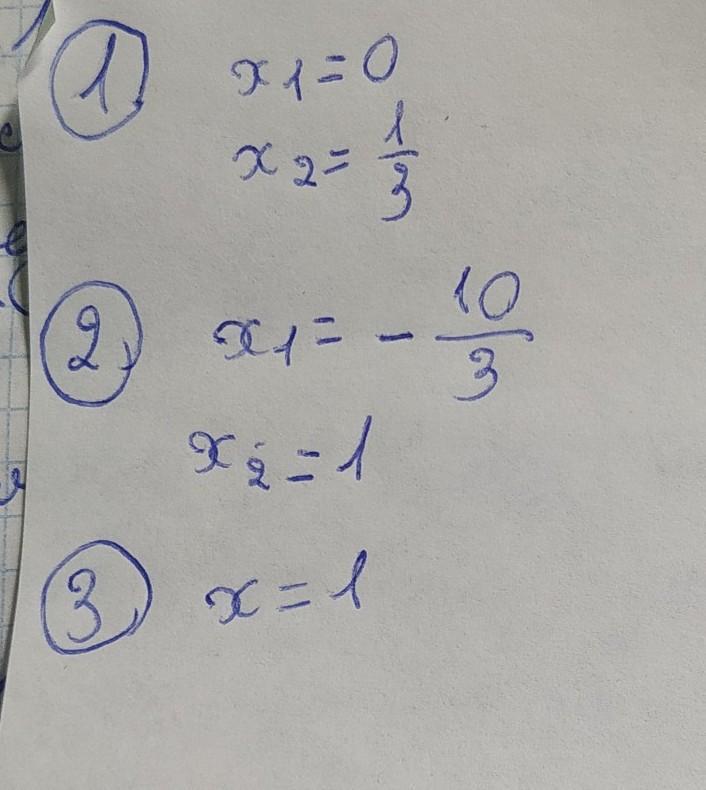 1 x₁ = 0
x₂ = 1/3
2, x₁ = - 10/3
x₂ = 1
3, x = 1